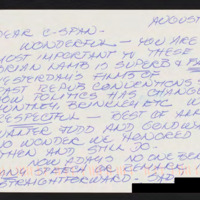 AUGUST
DEAR C-SPAN-
WONDERFUL - YOU ARE
MOST IMPORTANT TO THESE
BRIAN LAMB IS SUPERB &
YESTERDAYS FILMS OF
PAST REPUB CONVENTIONS
HOW POLITICS HAS CHANGED
HUNTLEY, BRINKLEY ETC. W
RESPECTFUL - BEST OF ALL
WALTER JUDD AND GOLDWA
NO WONDER WE HONORED
THEN AND STILL DO-
NOW A DAYS NO ONE
ANY SPEECH OR REMARK
STRAIGHTFORWARD - SAD